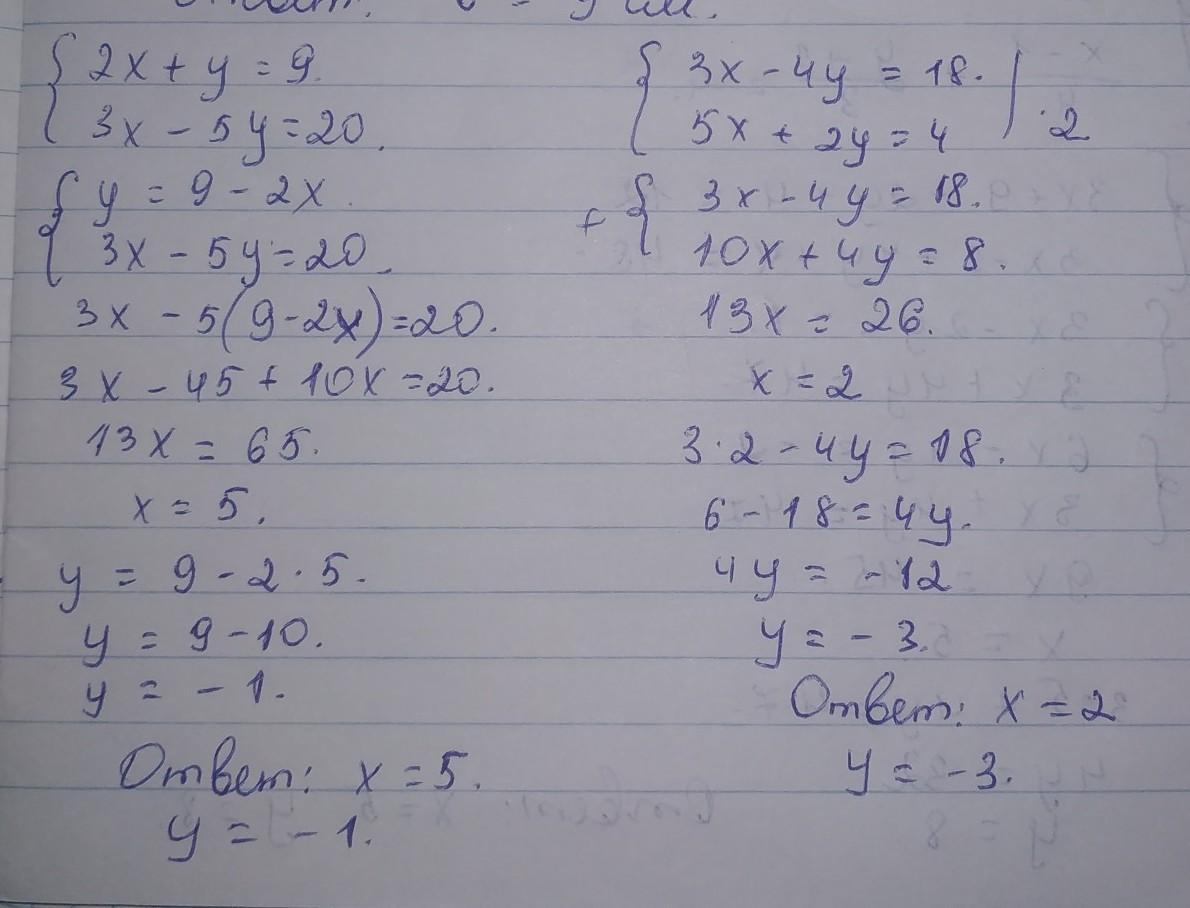 { 2x + y = 9.
3x - 5y = 20.
{ y = 9 - 2x.
3x - 5y = 20.
3x - 5(9-2x) = 20.
3x - 45 + 10x = 20.
13x = 65.
x = 5.
y = 9 - 2 · 5.
y = 9 - 10.
y = - 1.
Ответ: x = 5.
y = - 1.
{ 3x - 4y = 18. |
5x + 2y = 4 | · 2
+ { 3x - 4y = 18.
10x + 4y = 8.
13x = 26.
x = 2
3 · 2 - 4y = 18.
6 - 18 = 4y.
4y = - 12
y = - 3.
Ответ: x = 2
y = - 3.